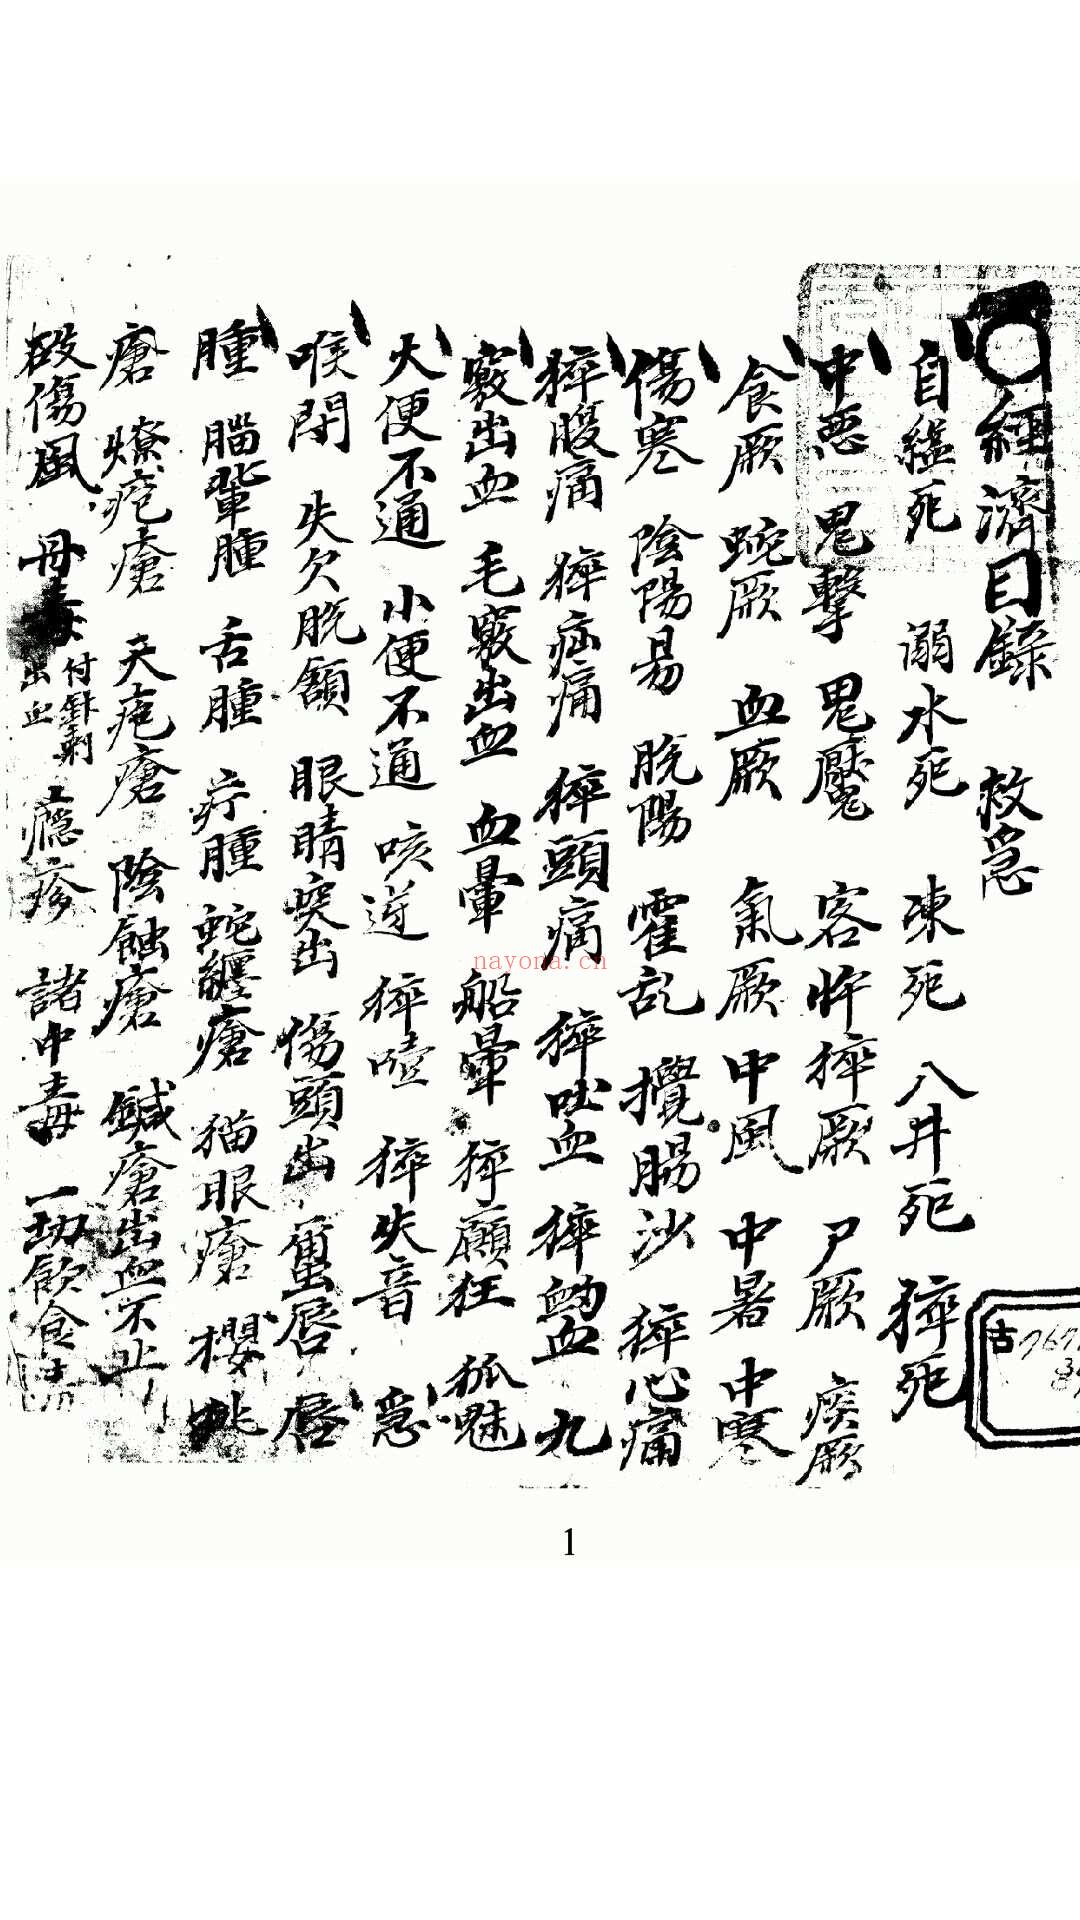 經濟目錄　救急
自縊死　溺水死　凍死　入井死　猝死
中惡　鬼擊　鬼魘　客忤猝厥　尸厥　痰厥
食厥　蛔厥　血厥　氣厥　中風　中暑　中寒
傷寒　陰陽易　脫陽　霍乱　攪腸沙　猝心痛
猝腹痛　猝疝痛　猝頭痛　猝吐血　猝衂血　九
竅出血　毛竅出血　血暈　船暈　猝癲狂　狐魅
大便不通　小便不通　咳逆　猝噎　猝失音　急
喉閉　失欠脫頷　眼睛突出　傷頭出　蠒唇　唇
腫　腦輩腫　舌腫　疔腫　蛇纏瘡　猫眼瘡　櫻桃
瘡　燎疱瘡　天疱瘡　陰蝕瘡　鍼瘡出血不止
破傷風　丹毒　付針刺出血　癮疹　諸中毒　一切飮食毒
nayona.cn
古
1